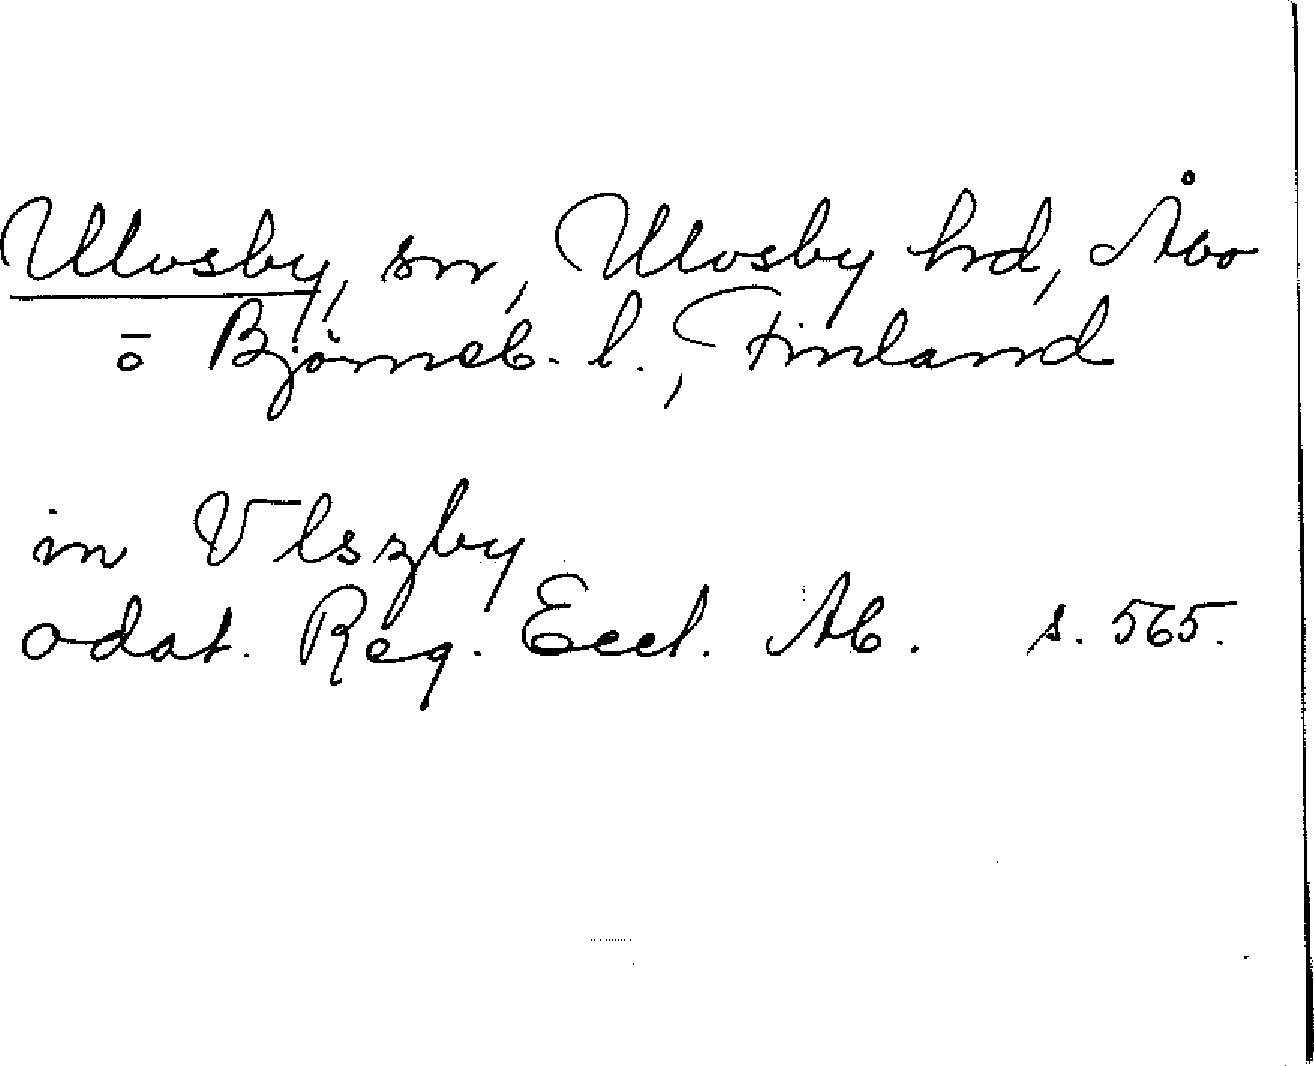 Ulvsby, sn, Ulvsby hd, Åbo
o Björneb. l., Finland
in Vlszby
odat. Reg. Eccl. Ab. s. 565.